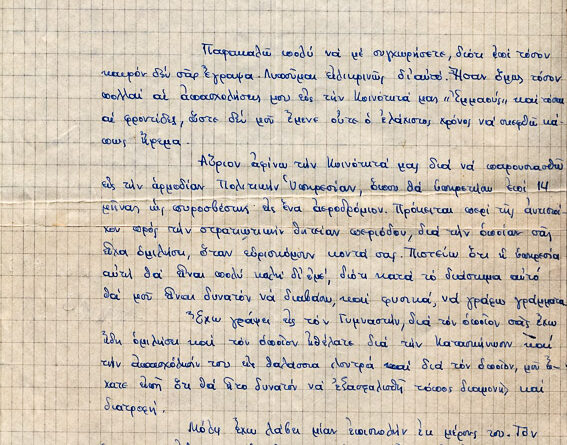 Παρακαλῶ πολύ νά μέ συγχωρήσετε, διότι ἐπί τόσον
καιρόν δέν σᾶς ἔγραψα. Λυποῦμαι εἰλικρινῶς δι' αὐτό. Ἦσαν ὅμως τόσον
πολλαί αἱ ἀπασχολήσεις μου εἰς τήν Κοινότητά μας "Ἐμμαούς" καί τόσαι
αἱ φροντίδες, ὥστε δέν μοῦ ἔμενε οὔτε ὁ ἐλάχιστος χρόνος νά σκεφθῶ κά-
πως ἤρεμα.
Αὔριον ἀφίνω τήν Κοινότητά μας διά νά παρουσιασθῶ
εἰς τήν ἁρμοδίαν Πολιτικήν Ὑπηρεσίαν, ὅπου θά ὑπηρετήσω ἐπί 14
μῆνας ὡς πυροσβέστης εἰς ἕνα ἀεροδρόμιον. Πρόκειται περί τῆς ἀντιστοί-
χου πρός τήν στρατιωτικήν θητείαν περιόδου, διά τήν ὁποίαν σᾶς
εἶχα ὁμιλήσει, ὅταν εὑρισκόμουν κοντά σας. Πιστεύω ὅτι ἡ ὑπηρεσία
αὐτή θά εἶναι πολύ καλή δι' ἐμέ, διότι κατά τό διάστημα αὐτό
θά μοῦ εἶναι δυνατόν νά διαβάσω, καί φυσικά, νά γράφω γράμματα.
Ἔχω γράψει εἰς τόν Γυμναστήν, διά τόν ὁποῖον σᾶς ἔχω
ἤδη ὁμιλήσει καί τόν ὁποῖον ἠθέλατε διά τήν Κατασκήνωσιν καί
τήν ἀπασχόλησίν του εἰς θαλάσσια λουτρά καί διά τόν ὁποῖον, μοῦ εἴ-
χατε εἰπῆ ὅτι θά ἦτο δυνατόν νά ἐξασφαλισθῆ τόπος διαμονῆς καί
διατροφή.
Μόλις ἔχω λάβει μίαν ἐπιστολήν ἐκ μέρους του. Τόν